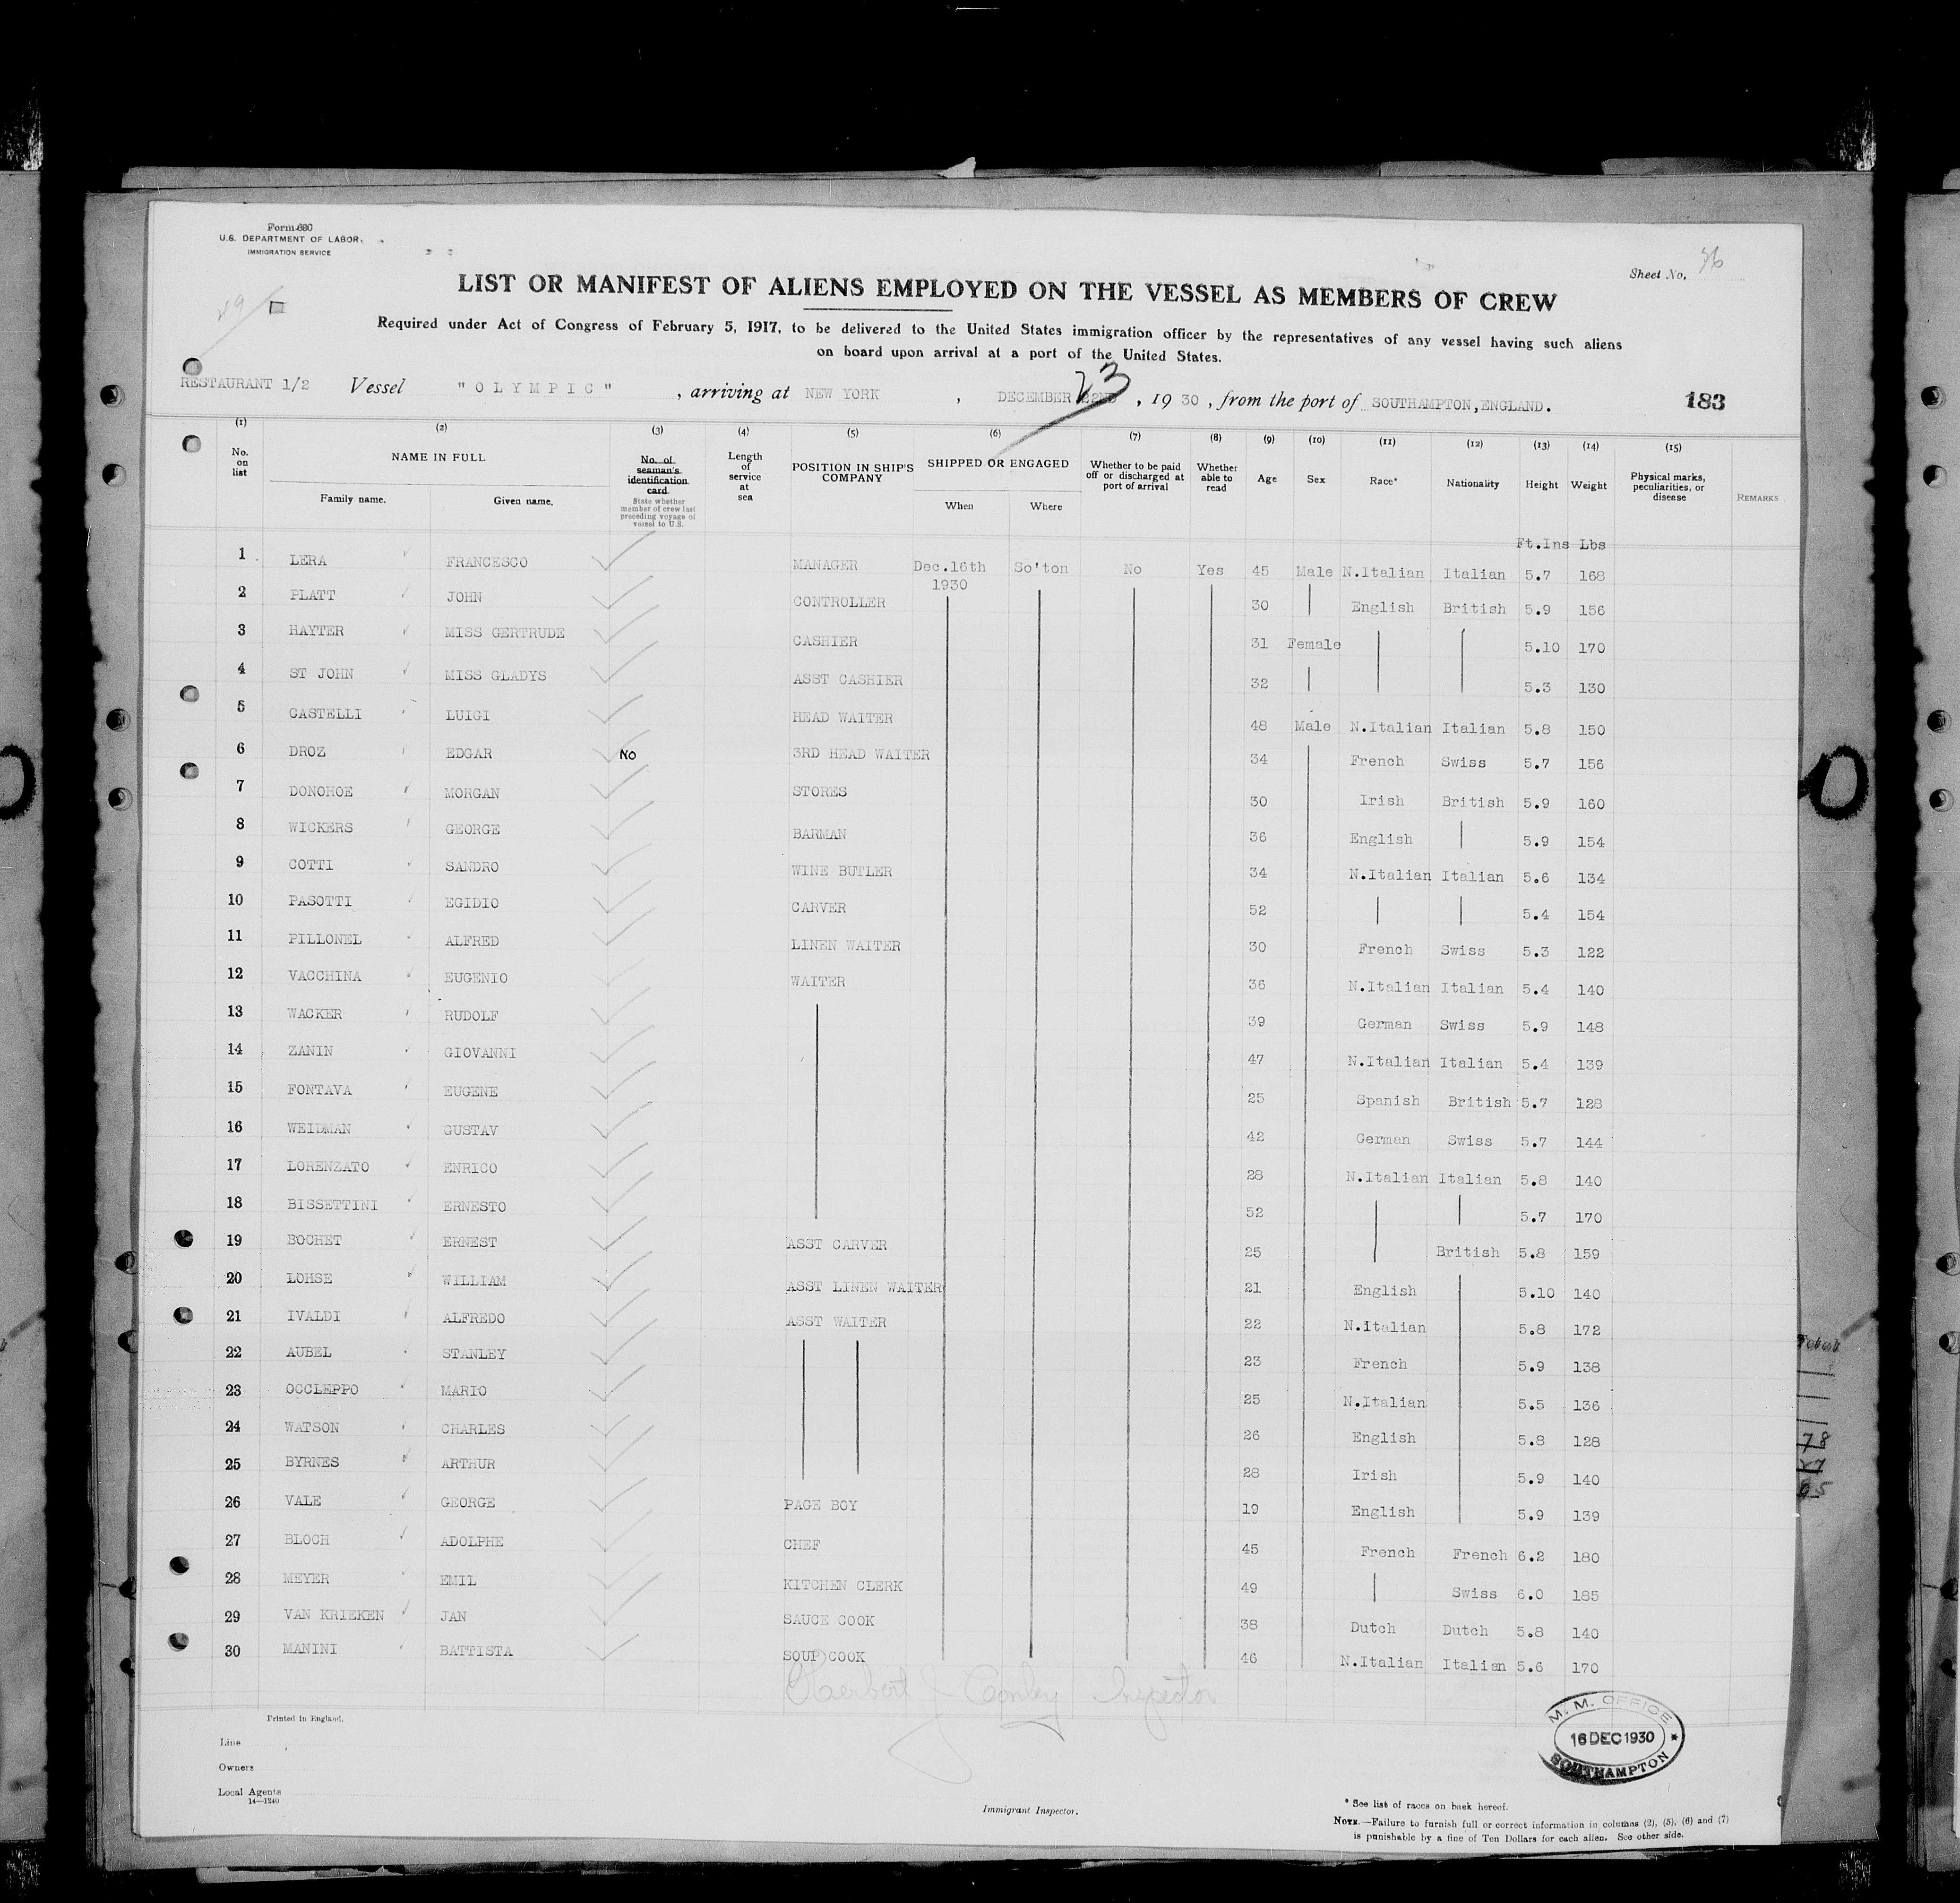 Form 680
U.S. DEPARTMENT OF LABOR
IMMIGRATION SERVICE
Sheet No. 36
LIST OR MANIFEST OF ALIENS EMPLOYED ON THE VESSEL AS MEMBERS OF CREW
Required under Act of Congress of February 5, 1917, to be delivered to the United States immigration officer by the representatives of any vessel having such aliens
on board upon arrival at a port of the United States.
RESTAURANT 1/2 Vessel "OLYMPIC", arriving at NEW YORK, DECEMBER 22ND 23, 1930, from the port of SOUTHAMPTON, ENGLAND. 183
(1) (2) (3) (4) (5) (6) (7) (8) (9) (10) (11) (12) (13) (14) (15)
No. on list NAME IN FULL Family name. Given name. No. of seaman's identification card. State whether member of crew last preceding voyage of vessel to U.S. Length of service at sea POSITION IN SHIP'S COMPANY SHIPPED OR ENGAGED When Where Whether to be paid off or discharged at port of arrival Whether able to read Age Sex Race* Nationality Height Weight Physical marks, peculiarities, or disease REMARKS
Ft.Ins Lbs
1 LERA FRANCESCO MANAGER Dec.16th 1930 So'ton No Yes 45 Male N.Italian Italian 5.7 168
2 PLATT JOHN CONTROLLER 30 English British 5.9 156
3 HAYTER MISS GERTRUDE CASHIER 31 Female 5.10 170
4 ST JOHN MISS GLADYS ASST CASHIER 32 5.3 130
5 CASTELLI LUIGI HEAD WAITER 48 Male N.Italian Italian 5.8 150
6 DROZ EDGAR No 3RD HEAD WAITER 34 French Swiss 5.7 156
7 DONOHOE MORGAN STORES 30 Irish British 5.9 160
8 WICKERS GEORGE BARMAN 36 English 5.9 154
9 COTTI SANDRO WINE BUTLER 34 N.Italian Italian 5.6 134
10 PASOTTI EGIDIO CARVER 52 5.4 154
11 PILLONEL ALFRED LINEN WAITER 30 French Swiss 5.3 122
12 VACCHINA EUGENIO WAITER 36 N.Italian Italian 5.4 140
13 WACKER RUDOLF 39 German Swiss 5.9 148
14 ZANIN GIOVANNI 47 N.Italian Italian 5.4 139
15 FONTAVA EUGENE 25 Spanish British 5.7 128
16 WEIDMAN GUSTAV 42 German Swiss 5.7 144
17 LORENZATO ENRICO 28 N.Italian Italian 5.8 140
18 BISSETTINI ERNESTO 52 5.7 170
19 BOCHET ERNEST ASST CARVER 25 British 5.8 159
20 LOHSE WILLIAM ASST LINEN WAITER 21 English 5.10 140
21 IVALDI ALFREDO ASST WAITER 22 N.Italian 5.8 172
22 AUBEL STANLEY 23 French 5.9 138
23 OCCLEPPO MARIO 25 N.Italian 5.5 136
24 WATSON CHARLES 26 English 5.8 128
25 BYRNES ARTHUR 28 Irish 5.9 140
26 VALE GEORGE PAGE BOY 19 English 5.9 139
27 BLOCH ADOLPHE CHEF 45 French French 6.2 180
28 MEYER EMIL KITCHEN CLERK 49 Swiss 6.0 185
29 VAN KRIEKEN JAN SAUCE COOK 38 Dutch Dutch 5.8 140
30 MANINI BATTISTA SOUP COOK 46 N.Italian Italian 5.6 170
Herbert J Conley Inspector
Printed in England.
Line
Owners
Local Agents
14—1240
Immigrant Inspector.
M. M. OFFICE
16 DEC 1930
SOUTHAMPTON
* See list of races on back hereof.
NOTE.—Failure to furnish full or correct information in columns (2), (5), (6) and (7)
is punishable by a fine of Ten Dollars for each alien. See other side.